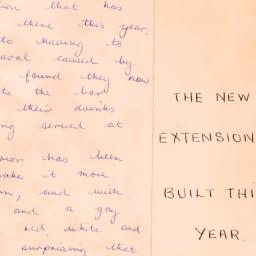 ion that has
there this year.
to having to
aval caused by
found they now
to the bar
their drinks
ng served at
rior has been
ake it more
rn, and with
and a gay
red, white and
surprising that
THE NEW
EXTENSION
BUILT THI
YEAR.